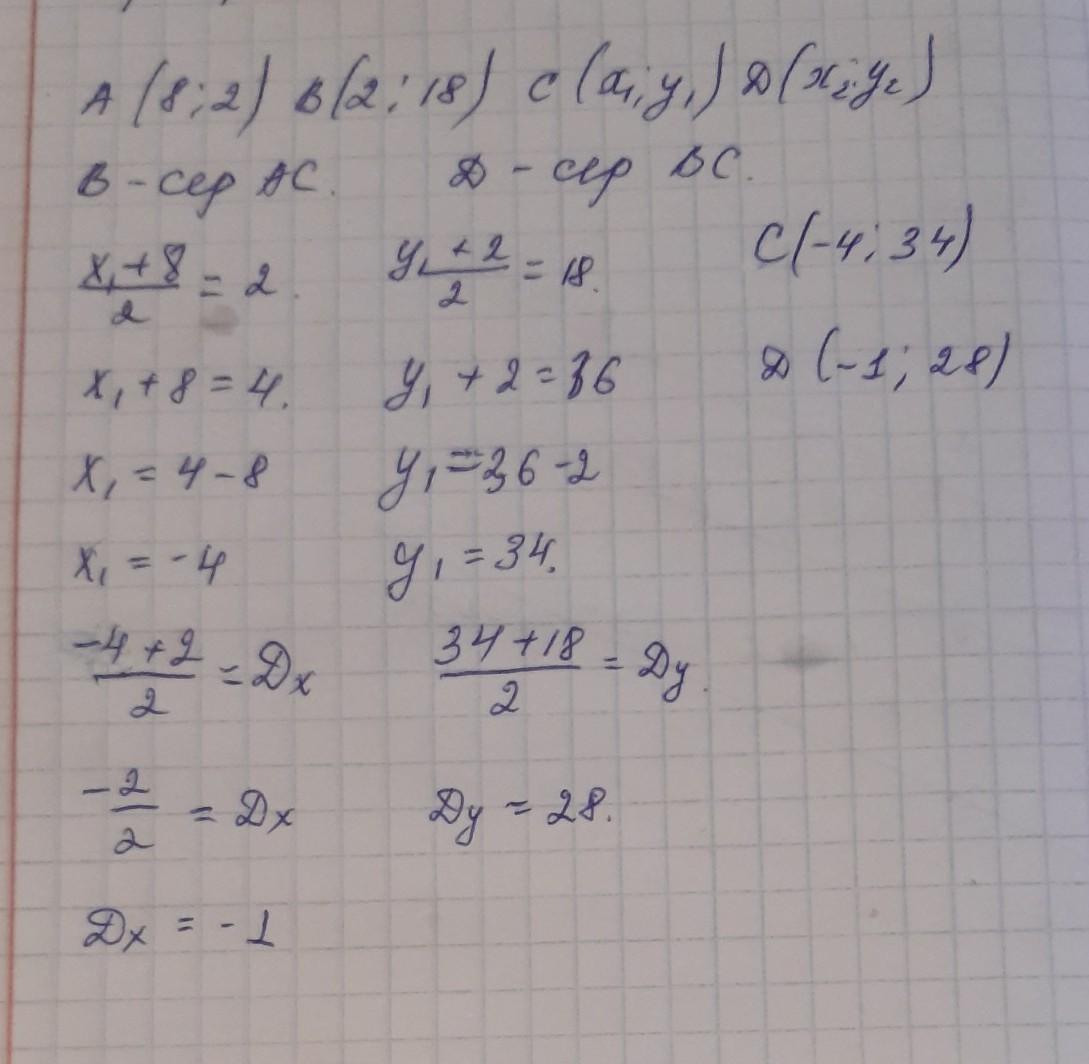 А (8;2) В(2;18) С(x₁;y₁) Д(x₂;y₂)
В - сер АС. Д - сер ВС.
(x₁+8)/2 = 2. (y₁+2)/2 = 18. С(-4;34)
x₁+8=4. y₁+2=36 Д(-1;28)
x₁=4-8 y₁=36-2
x₁=-4 y₁=34.
(-4+2)/2 = Dx (34+18)/2 = Dy.
-2/2 = Dx Dy = 28.
Dx = -1